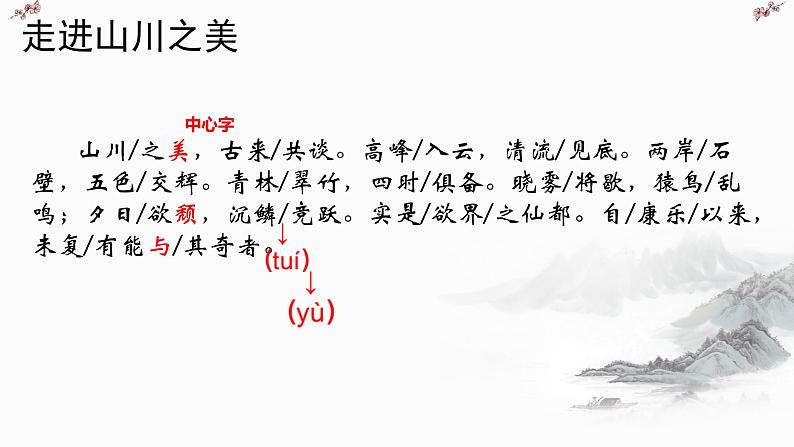 走进山川之美
中心字
山川/之美，古来/共谈。高峰/入云，清流/见底。两岸/石
壁，五色/交辉。青林/翠竹，四时/俱备。晓雾/将歇，猿鸟/乱
鸣；夕日/欲颓，沉鳞/竞跃。实是/欲界/之仙都。自/康乐/以来，
未复/有能与/其奇者。
↓
(tuí)
↓
(yù)